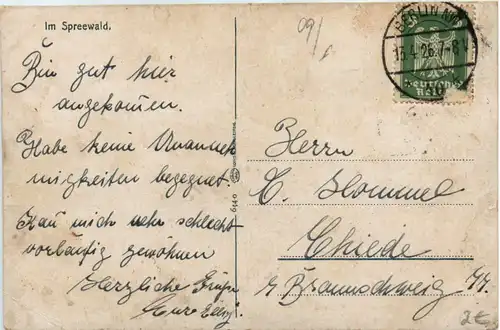 Im Spreewald.
Bin gut hier
angekommen.
Habe keine Unanneh
migkeiten begegnet.
Kan mich sehr schlecht
vorläufig gewöhnen
Herzliche Grüße
09/
BERLIN
15.4.26.7-8V
Deutsches
Reich
Herrn
C. Hommel
Thiede
Braunschweig
6440
2€